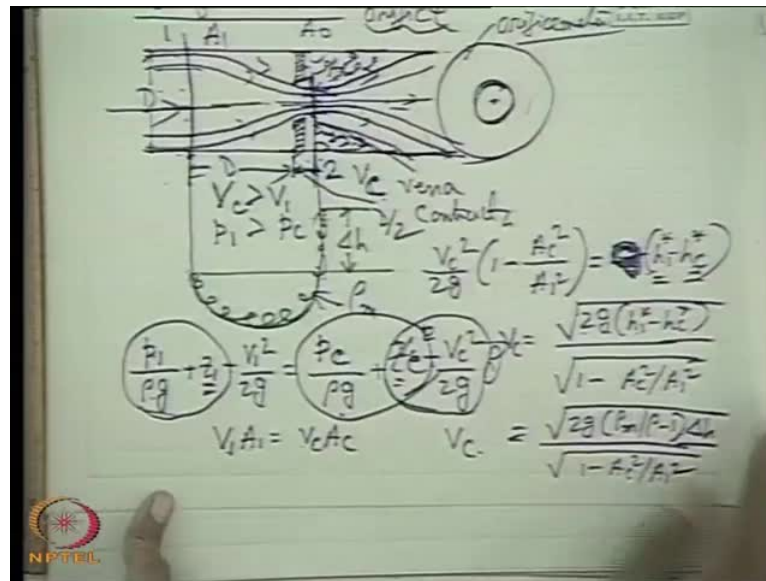 1 A₁ A₀ orifice orificemeter I.I.T. KGP
D
D 2 V_c vena
contracta
V_c > V₁ D/2
p₁ > p_c Δh
V_c²/2g (1 - A_c²/A₁²) = (h₁* - h_c*)
ρ_m
p₁/ρg + z₁ + V₁²/2g = p_c/ρg + z_c + V_c²/2g
V_c = √2g(h₁* - h_c*) / √1 - A_c²/A₁²
V₁A₁ = V_cA_c
V_c = √2g(ρ_m/ρ - 1)Δh / √1 - A_c²/A₁²
NPTEL